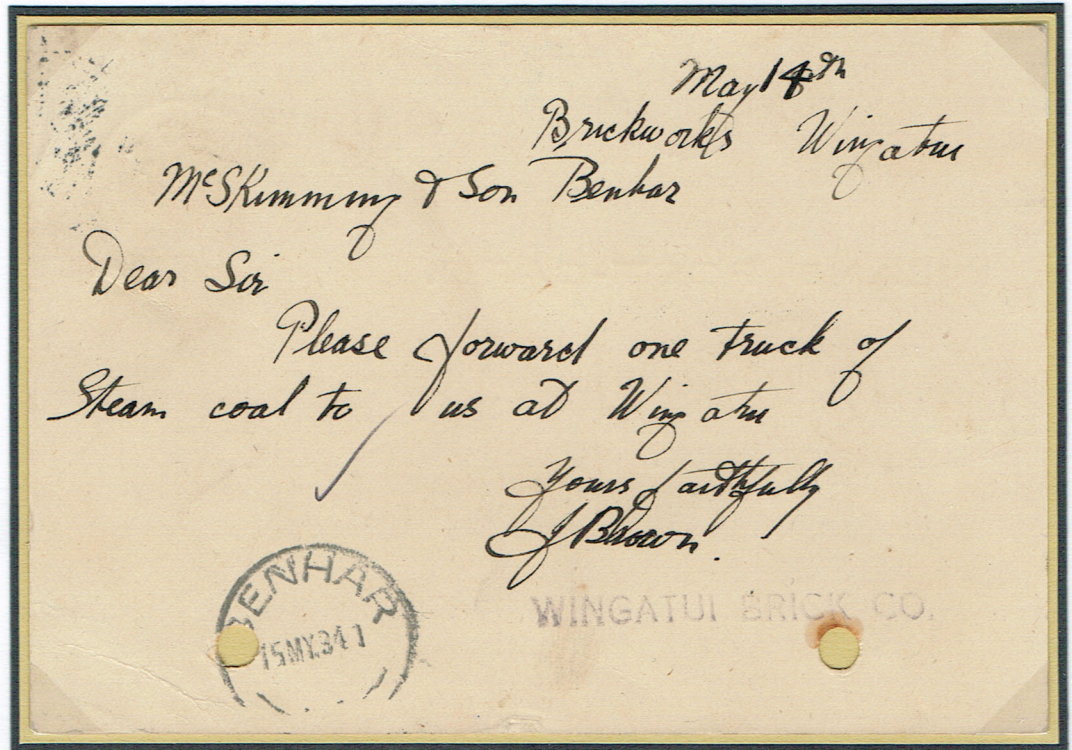 May 14th
Brickworks Wingatui
McSkimming & Son Benhar
Dear Sir
Please forward one truck of
Steam coal to us at Wingatui
Yours faithfully
J Brown.
WINGATUI BRICK CO.
BENHAR
15MY.34 1